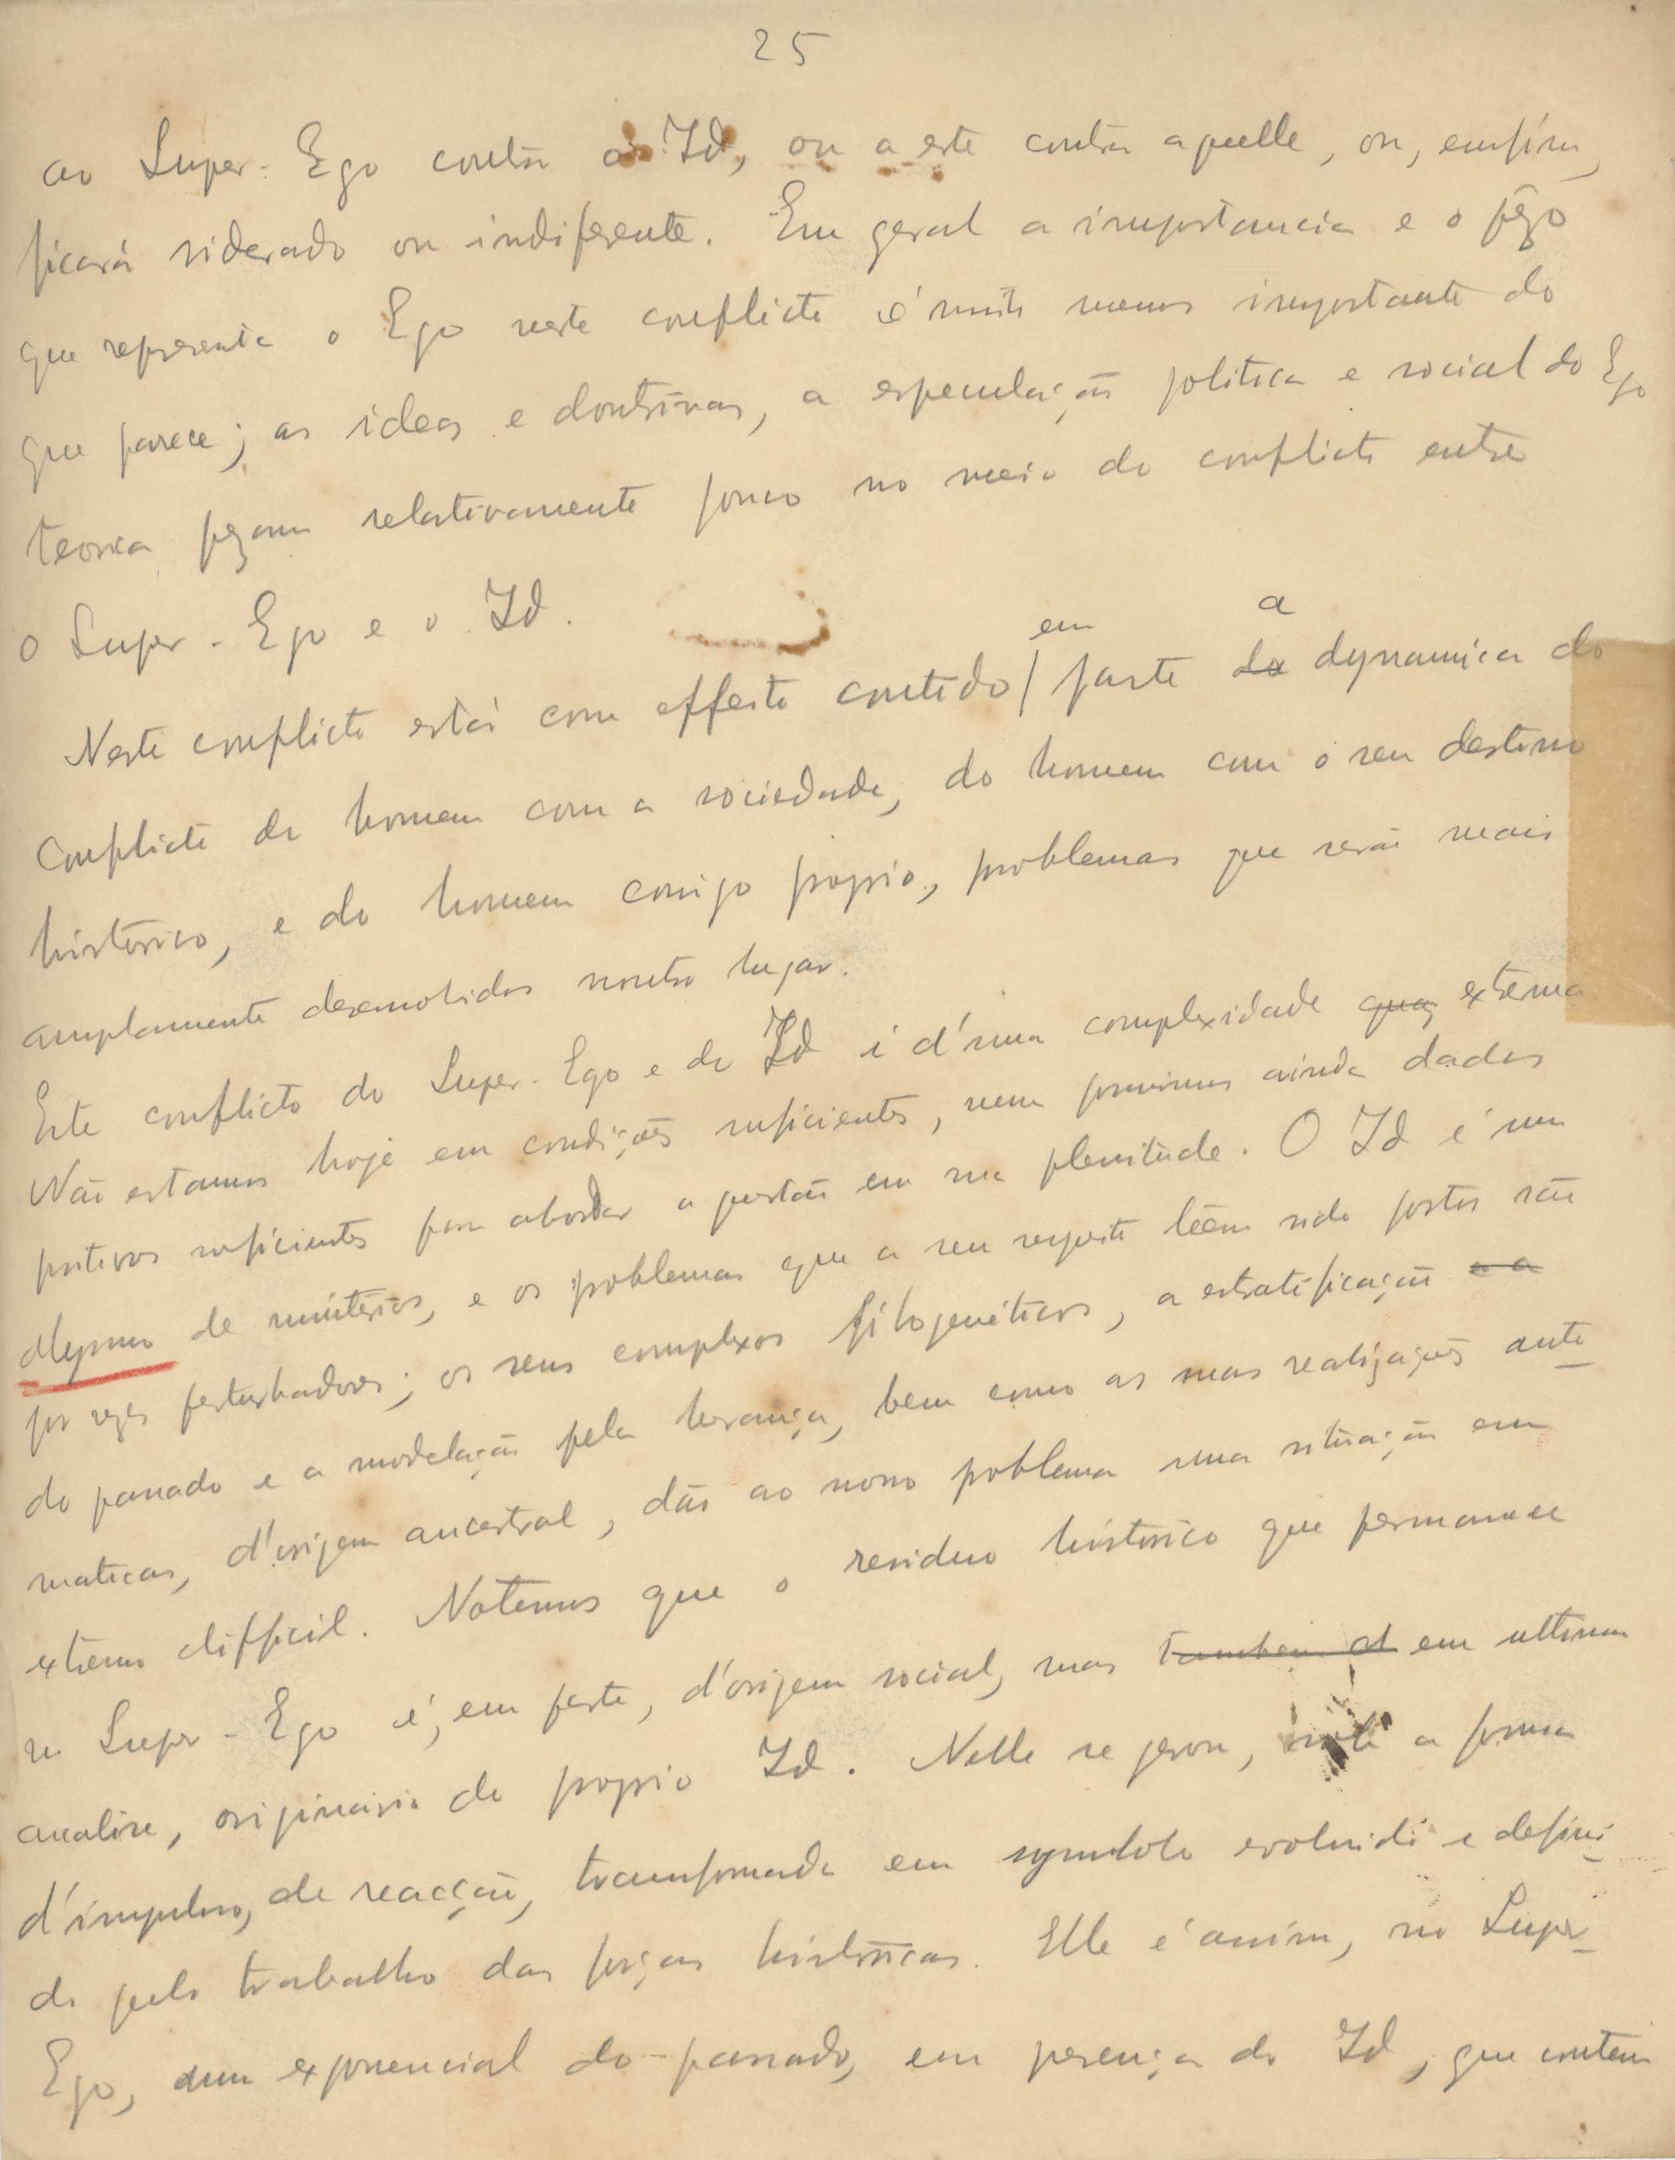 25
ao Super-Ego contra o Id, ou a este contra aquelle, ou, emfim,
ficará siderado ou indiferente. Em geral a importancia e o pêzo
que representa o Ego neste conflicto é muito menos importante do
que parece; as ideas e doutrinas, a especulação politica e social do Ego
teorica pezam relativamente pouco no meio do conflicto entre
o Super-Ego e o Id.
em a
Neste conflicto está com effeito contido / parte da dynamica do
conflicto do homem com a sociedade, do homem com o seu destino
historico, e do homem comigo proprio, problemas que serão mais
amplamente desenvolvidos noutro lugar.
Este conflicto do Super-Ego e do Id é d'uma complexidade quaz extema
Não estamos hoje em condições suficientes, nem possuimos ainda dados
positivos suficientes para abordar a questão em sua plenitude. O Id é um
abysmo de misterios, e os problemas que a seu respeito têem sido postos são
por vezes perturbadores; os seus complexos filogenéticos, a estratificação e a
do passado e a modelação pela herança, bem como as suas realizações auto
maticas, d'origem ancestral, dão ao nosso problema uma situação em
extremo difficil. Notemos que o residuo historico que permanece
no Super-Ego é, em parte, d'origem social, mas tambem d em ultima
analise, originario do proprio Id. Nelle se gerou, sob a forma
d'impulso, de reacção, transformada em symbolo evoluido e defini
do pelo trabalho das forças historicas. Elle é assim, no Super-
Ego, um exponencial do passado, em presença do Id, que contem